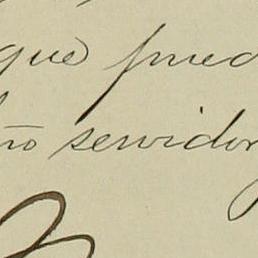 que pued
ño servidor